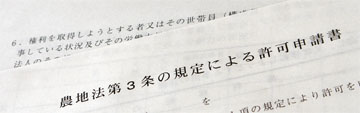 6．権利を取得しようとする者又はその世帯員
事している状況及びその労働
法人の
農地法第３条の規定による許可申請書
を
項の規定により許可を